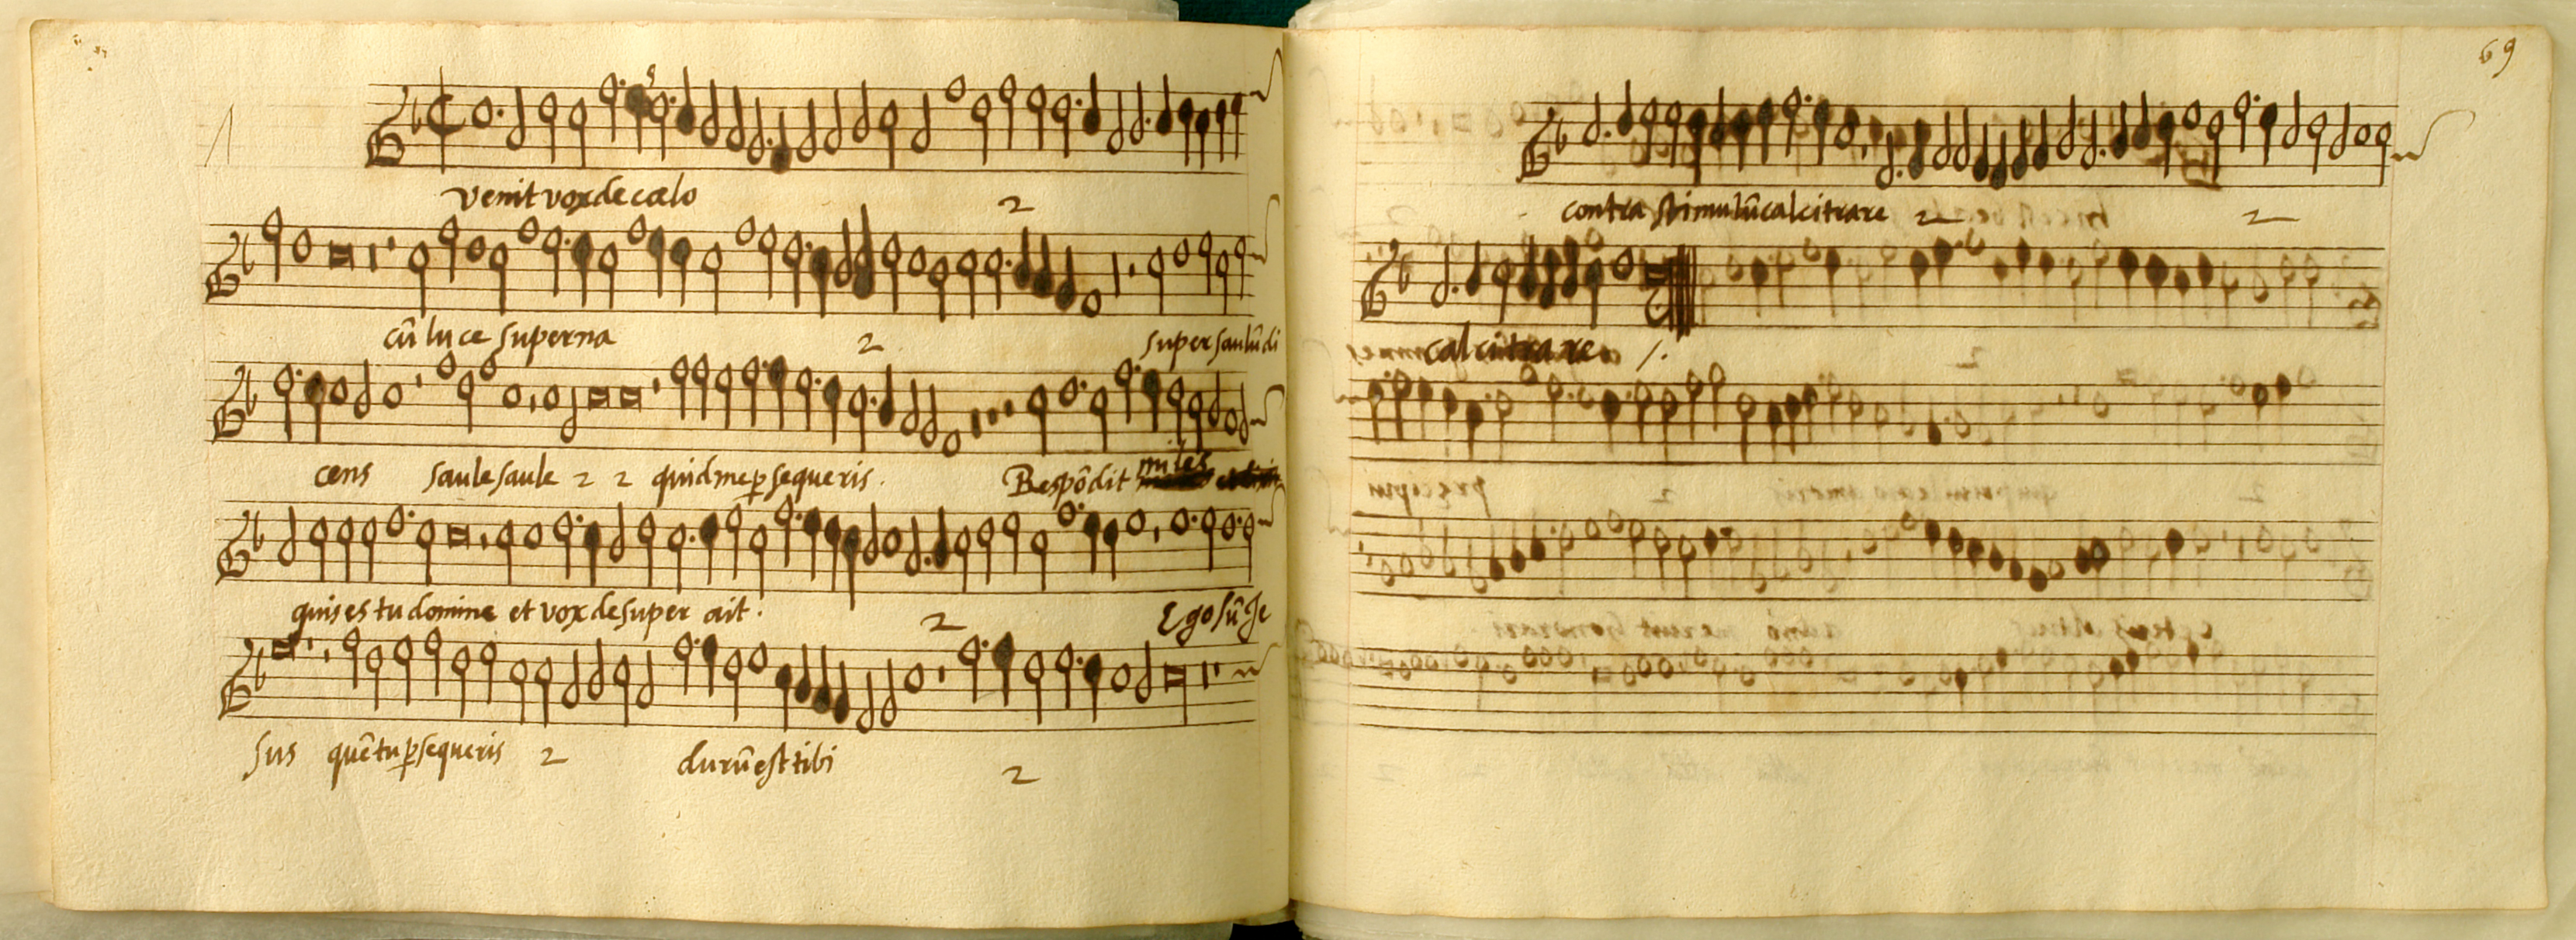 venit vox de cælo 2
cū luce superna 2 super saulū di
cens saule saule 2 2 quid me ꝑsequeris. Respōdit miles
quis es tu domine et vox desuper ait. 2 Ego sū Je
sus quē tu ꝑsequeris 2 durū est tibi 2
69
contra stimulū calcitrare 2 2
calcitrare /.